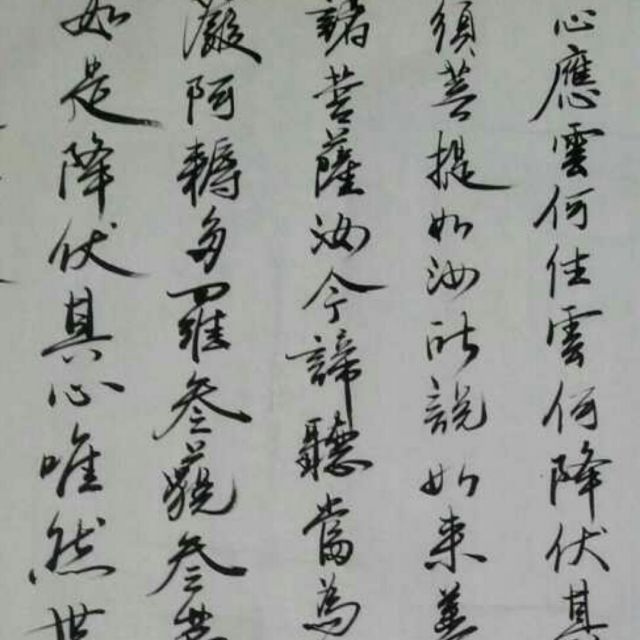 心應雲何住雲何降伏其
須菩提如汝所說如來善
諸菩薩汝今諦聽當為
發阿耨多羅叁藐叁菩
如是降伏其心唯然世